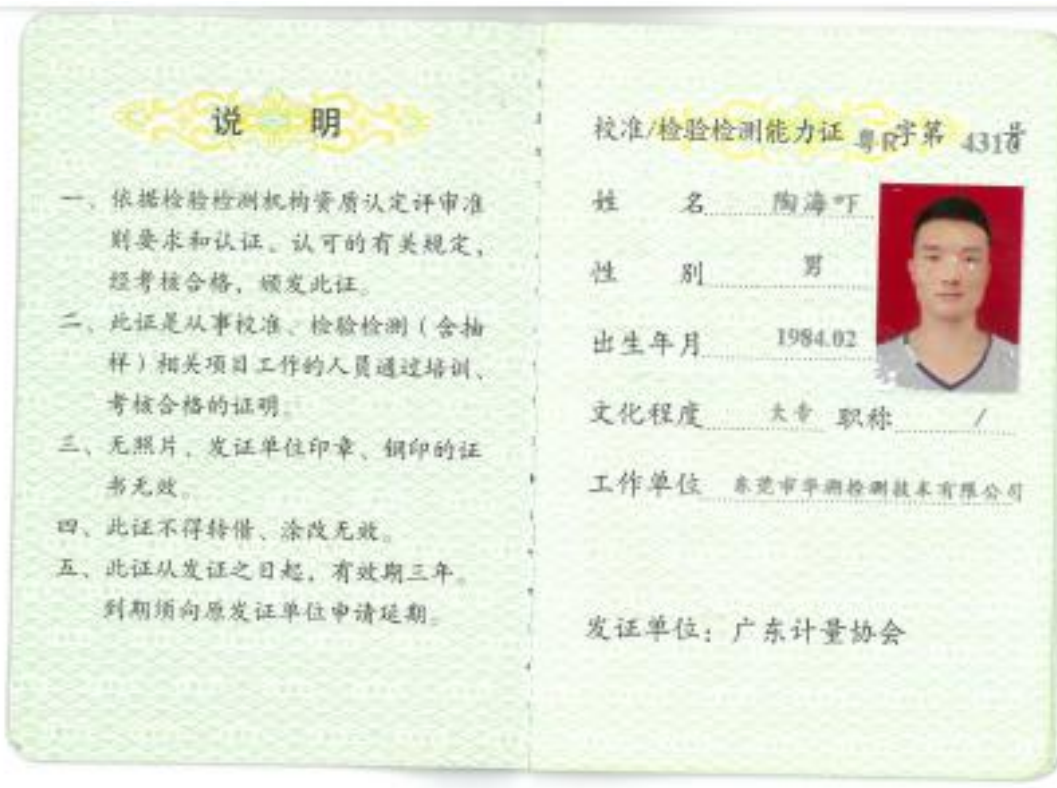 说 明
一、依据检验检测机构资质认定评审准
则要求和认证、认可的有关规定，
经考核合格，颁发此证。
二、此证是从事校准、检验检测（含抽
样）相关项目工作的人员通过培训、
考核合格的证明。
三、无照片、发证单位印章、钢印的证
书无效。
四、此证不得转借、涂改无效。
五、此证从发证之日起，有效期三年。
到期须向原发证单位申请延期。
校准/检验检测能力证 粤R字第 431 号
姓 名 陶海
性 别 男
出生年月 1984.02
文化程度 大专 职称 /
工作单位 东莞市华 检测技术有限公司
发证单位：广东计量协会